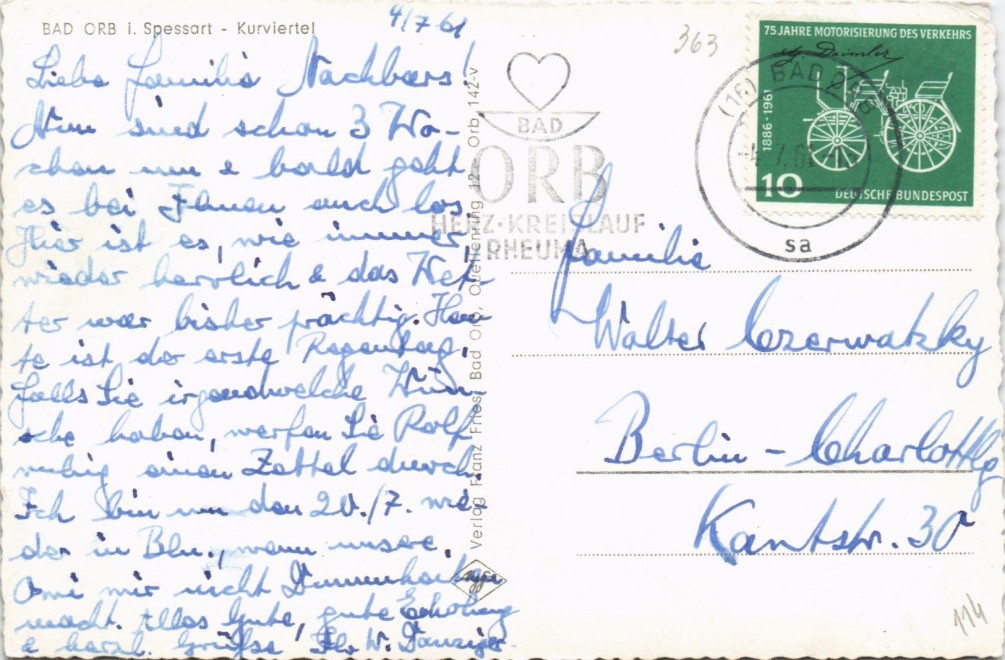 BAD ORB i. Spessart - Kurviertel
4/7 61
Liebe Familie Nachbars!
Nun sind schon 3 Wo-
chen um & bald geht
es bei Ihnen auch los
Hier ist es, wie immer,
wieder herrlich & das Wet-
ter war bisher prächtig. Heu
te ist der erste Regentag.
Falls Sie irgendwelche Wün
sche haben, werfen Sie Rolf
ruhig einen Zettel durch.
Ich bin um den 20./7. wie
der in Bln., wenn unsere
Omi mir nicht Dummheiten
macht. Alles Gute, gute Erholung
& herzl. Grüße Ihr W. Danziger
Verlag Franz Fries, Bad Orb, Quellenring 12 Orb 142-v
BAD
ORB
HERZ·KREISLAUF
RHEUMA
363
75 JAHRE MOTORISIERUNG DES VERKEHRS
G. Daimler
1886-1961
10
DEUTSCHE BUNDESPOST
(16) BAD ORB
4.7.61
sa
Familie
Walter Czerwatzky
Berlin - Charlottbg
Kantstr. 30
114